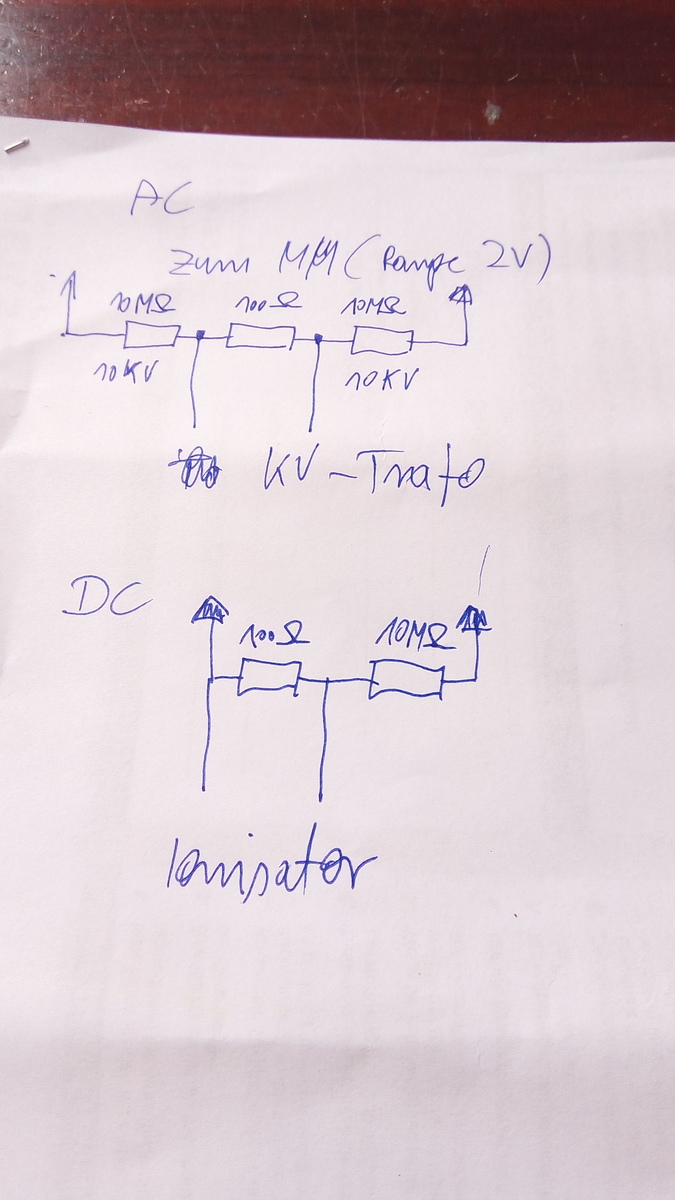 AC
zum MM (Range 2V)
10MΩ 100Ω 10MΩ
10KV 10KV
KV-Trafo
DC
100Ω 10MΩ
Ionisator